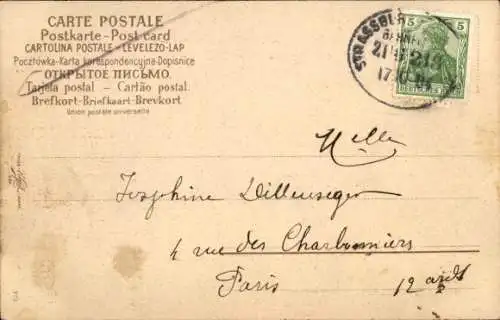 CARTE POSTALE
Postkarte-Post card
CARTOLINA POSTALE-LEVELEZŐ-LAP
Pocztówka-Karta korespondencyjna-Dopisnice
ОТКРЫТОЕ ПИСЬМО.
Tarjeta postal - Cartão postal.
Brefkort-Briefkaart-Brevkort
Union postale universelle
STRASSBURG
5 5
Melle
Josephine Dillenseger
4 rue des Charbonniers
Paris 12